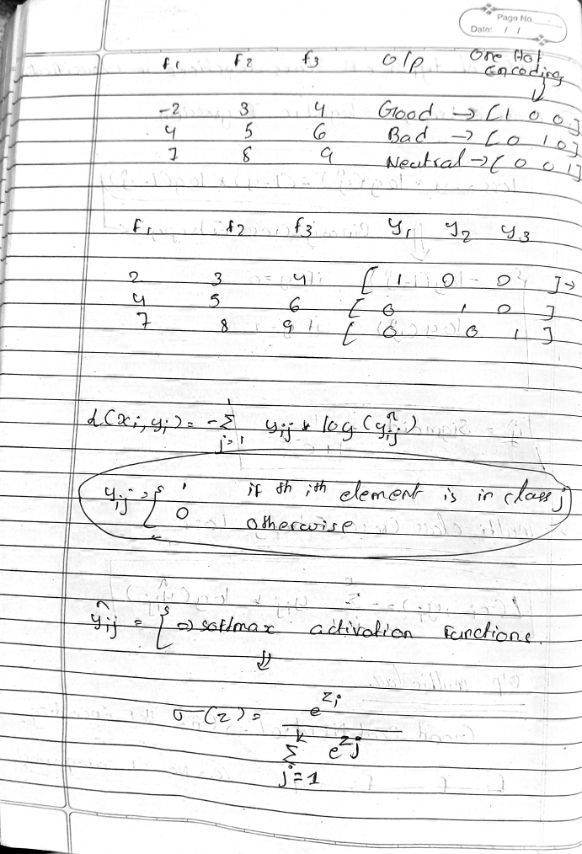 Page No.
Date: / /
f1 f2 f3 O/p One Hot
Encoding
-2 3 4 Good → [1 0 0]
4 5 6 Bad → [0 1 0]
7 8 9 Neutral → [0 0 1]
f1 f2 f3 y1 y2 y3
2 3 4 [ 1 0 0 ] →
4 5 6 [ 0 1 0 ]
7 8 9 [ 0 0 1 ]
L(xi, yi) = -Σ j=1 yij * log (ŷij)
yij = { 1 if th ith element is in class j
0 otherwise
ŷij = { ⇒ softmax activation functions.
⇓
σ(z) = e^zj / Σ j=1 k e^zj